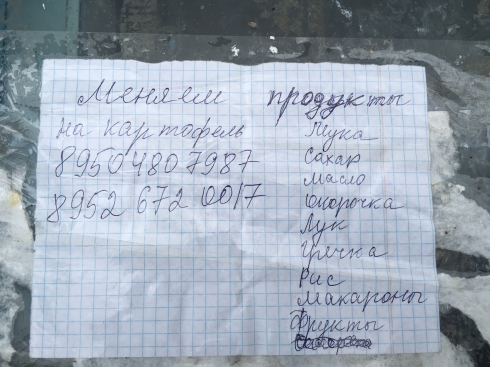 Меняем
на картофель
89504807987
8952 672 0017
продукты
Мука
Сахар
Масло
Окорочка
Лук
Гречка
Рис
Макароны
Фрукты